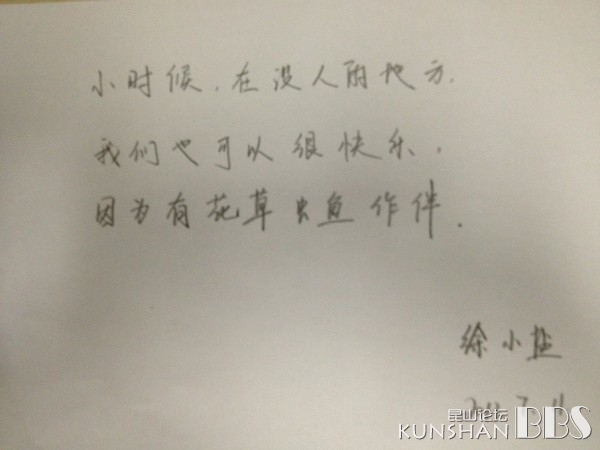 小时候，在没人的地方．
我们也可以很快乐，
因为有花草虫鱼作伴．
徐小盐
昆山论坛
KUNSHAN BBS